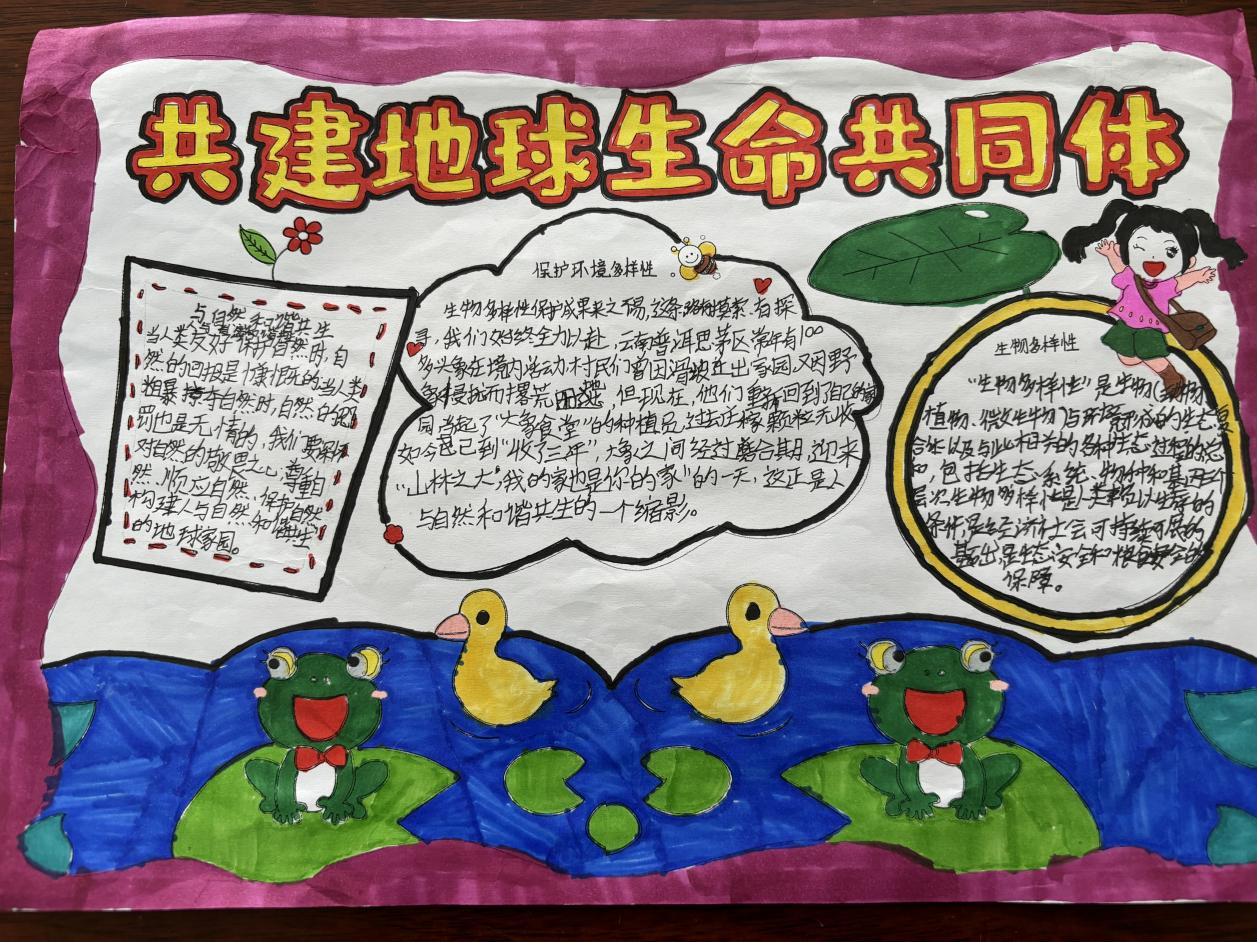 共建地球生命共同体
与自然和谐
人与自然和谐共生
当人类友好保护自然时,自
然的回报是慷慨的当人类
粗暴掠夺自然时,自然的惩
罚也是无情的,我们要深怀
对自然的敬畏之心,尊重自
然、顺应自然、保护自然
构建人与自然和谐共生
的地球家园。
保护环境多样性
生物多样性保护成果来之不易,这条路有摸索,有探
寻,我们始终全力以赴,云南普洱思茅区常年有100
多头象在境内活动村民们曾因滑坡迁出家园,又因野
象侵扰而撂荒田地,但现在,他们重新回到自己的家
园,当起了“大象食堂”的种植员,过去迁移颗粒无收
如今已到“收了三年”,人象之间经过磨合期,迎来
“山林之大,我的家也是你的家”的一天,这正是人
与自然和谐共生的一个缩影。
生物多样性
“生物多样性”是生物(动物
植物、微生物)与环境形成的生态复
合体以及与此相关的各种生态过程的总
和,包括生态系统、物种和基因三个
层次生物多样性是人类赖以生存的
条件,是经济社会可持续发展的
基础,是生态安全和粮食安全的
保障。